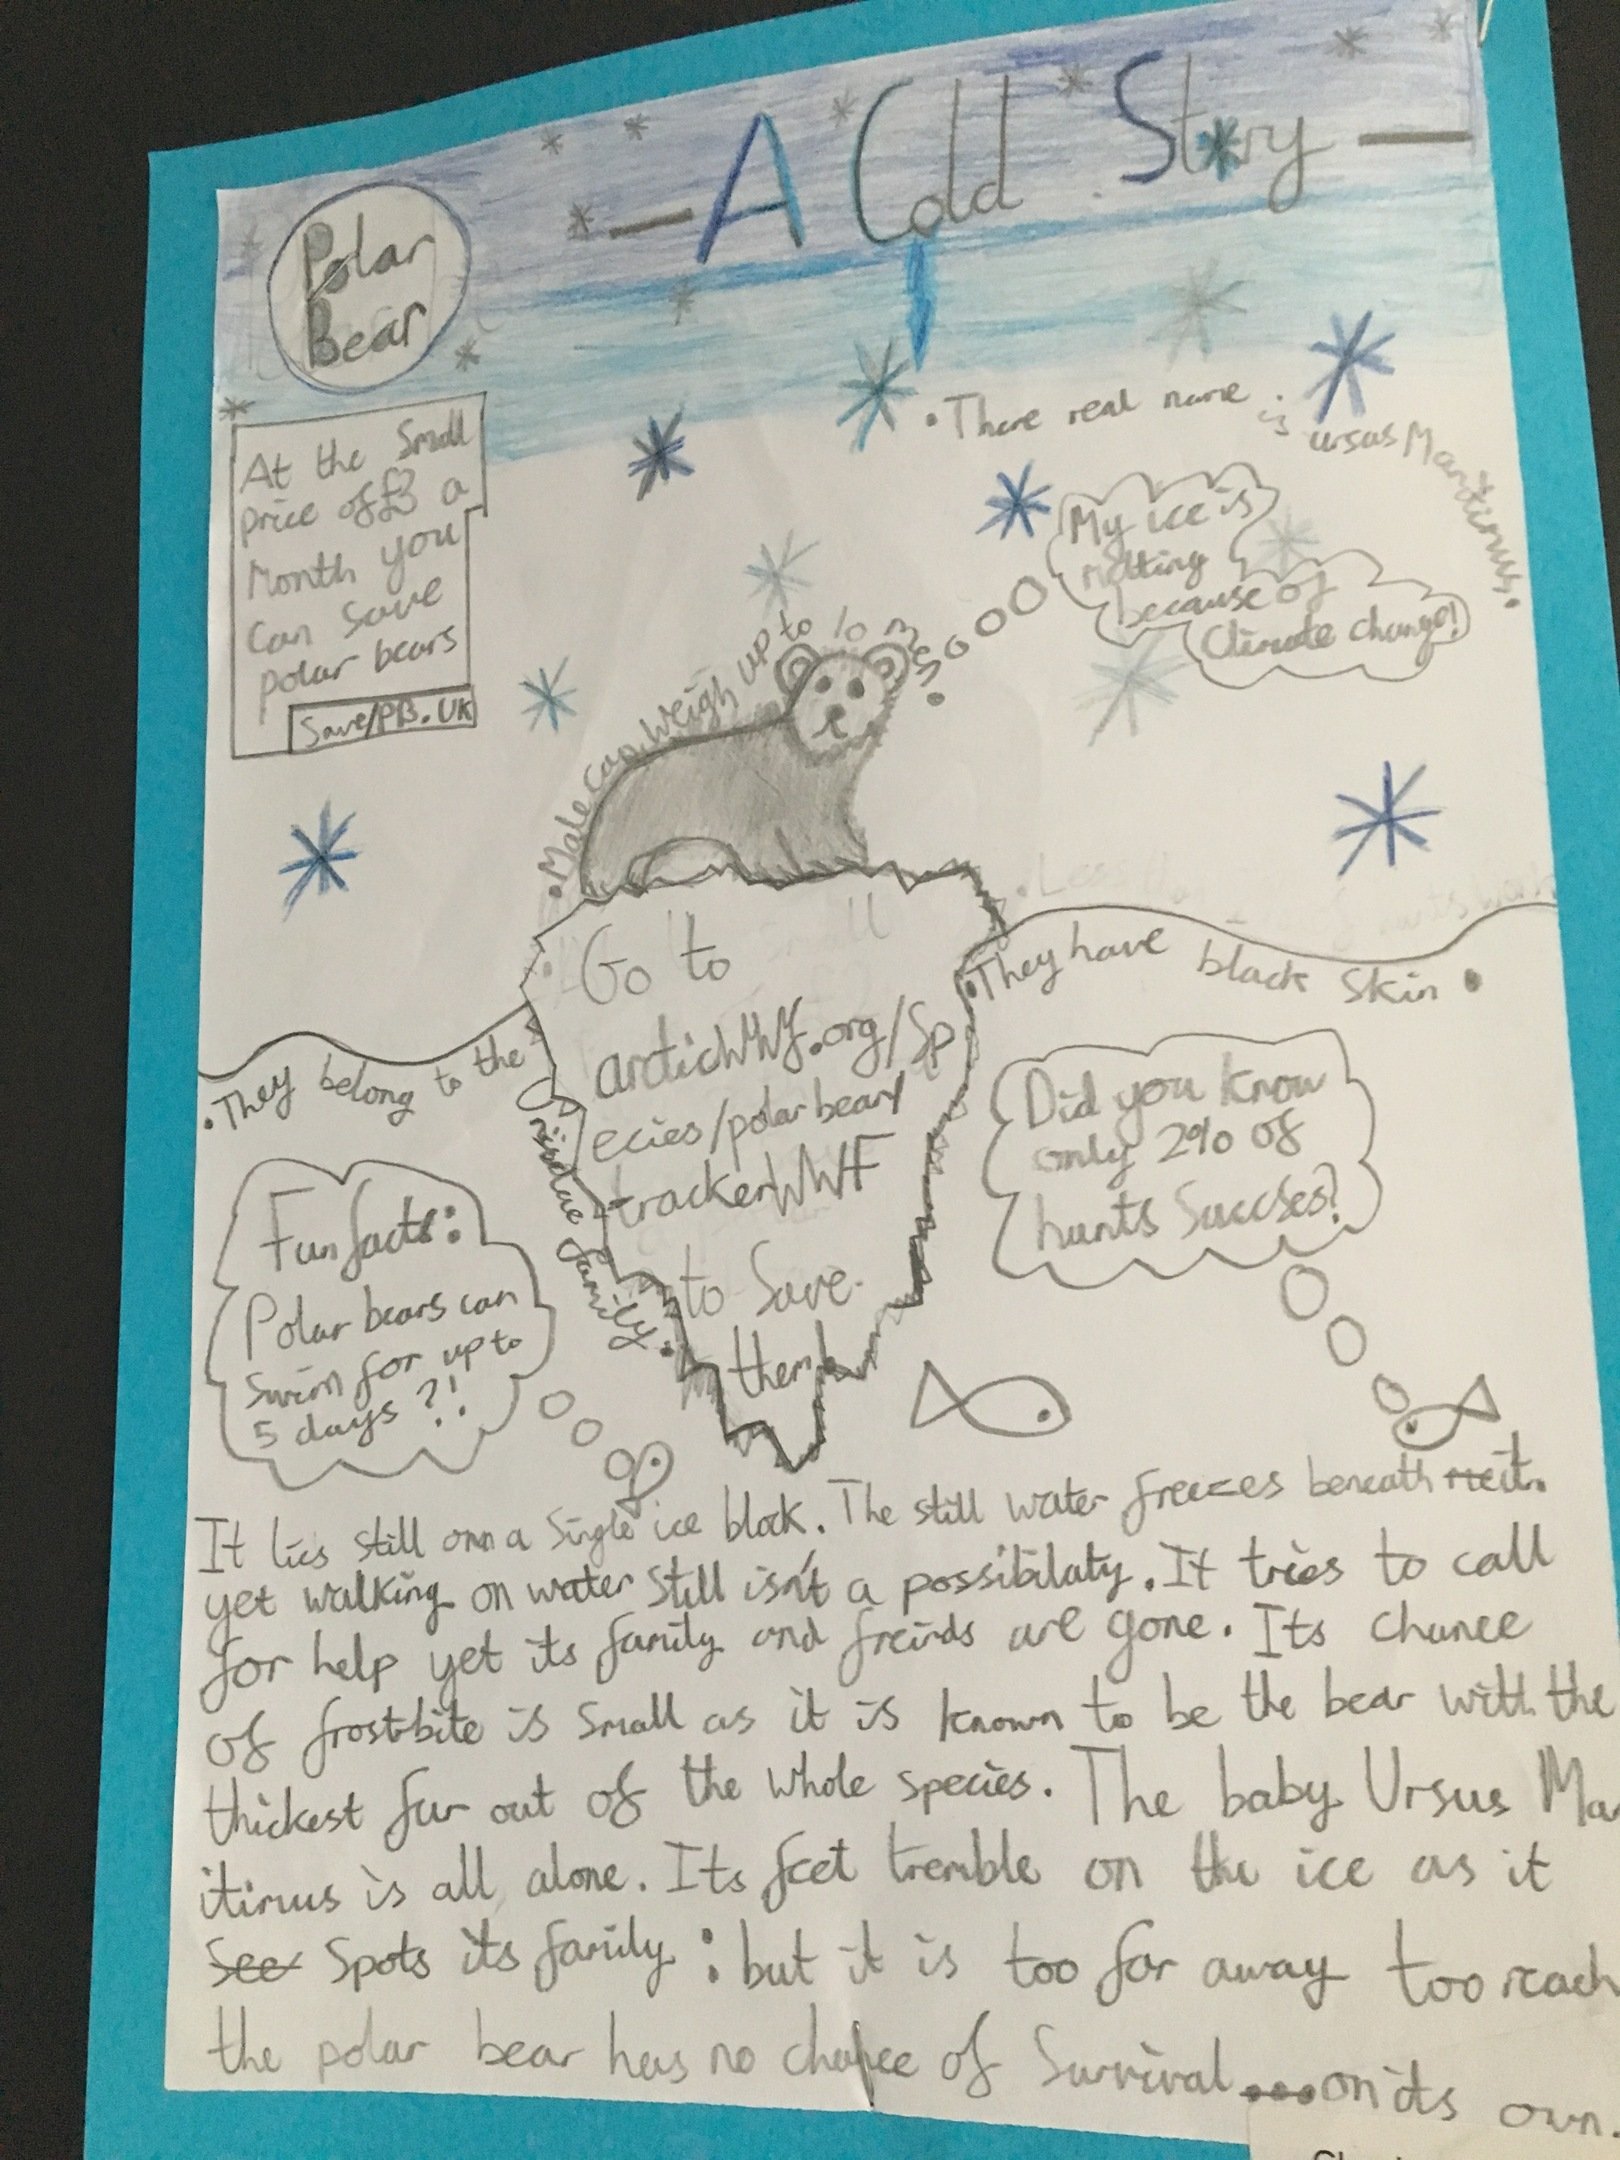 — A Cold Story —
Polar
Bear
At the Small
price of £3 a
Month you
can save
polar bears
Save/PB.UK
• There real name is ursus Maritimus.
My ice is
melting
because of
Climate change!
• Male can weigh up to 10 men
Go to
arcticWWF.org/Sp
ecies/polar bear/
trackerWWF
to Save
them!
• They have black skin •
• They belong to the Ursidae family.
Did you know
only 2% of
hunts Succses?
Fun facts:
Polar bears can
swim for up to
5 days?!
It lies still on a single ice block. The still water freezes beneath it.
yet walking on water still isn't a possibilaty. It tries to call
for help yet its family and freinds are gone. Its chance
of frostbite is small as it is known to be the bear with the
thickest fur out of the whole species. The baby Ursus Mar
itimus is all alone. Its feet tremble on the ice as it
See Spots its family: but it is too far away too reach
the polar bear has no chance of Survival...on its own.